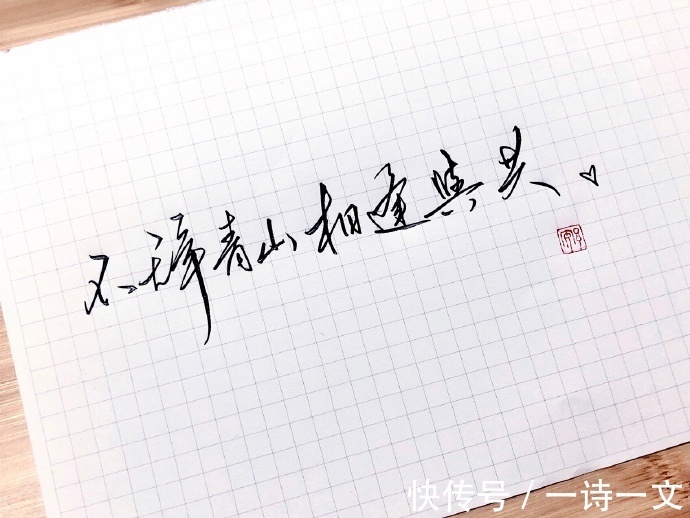 不辞青山相逢與共。
快传号／一诗一文